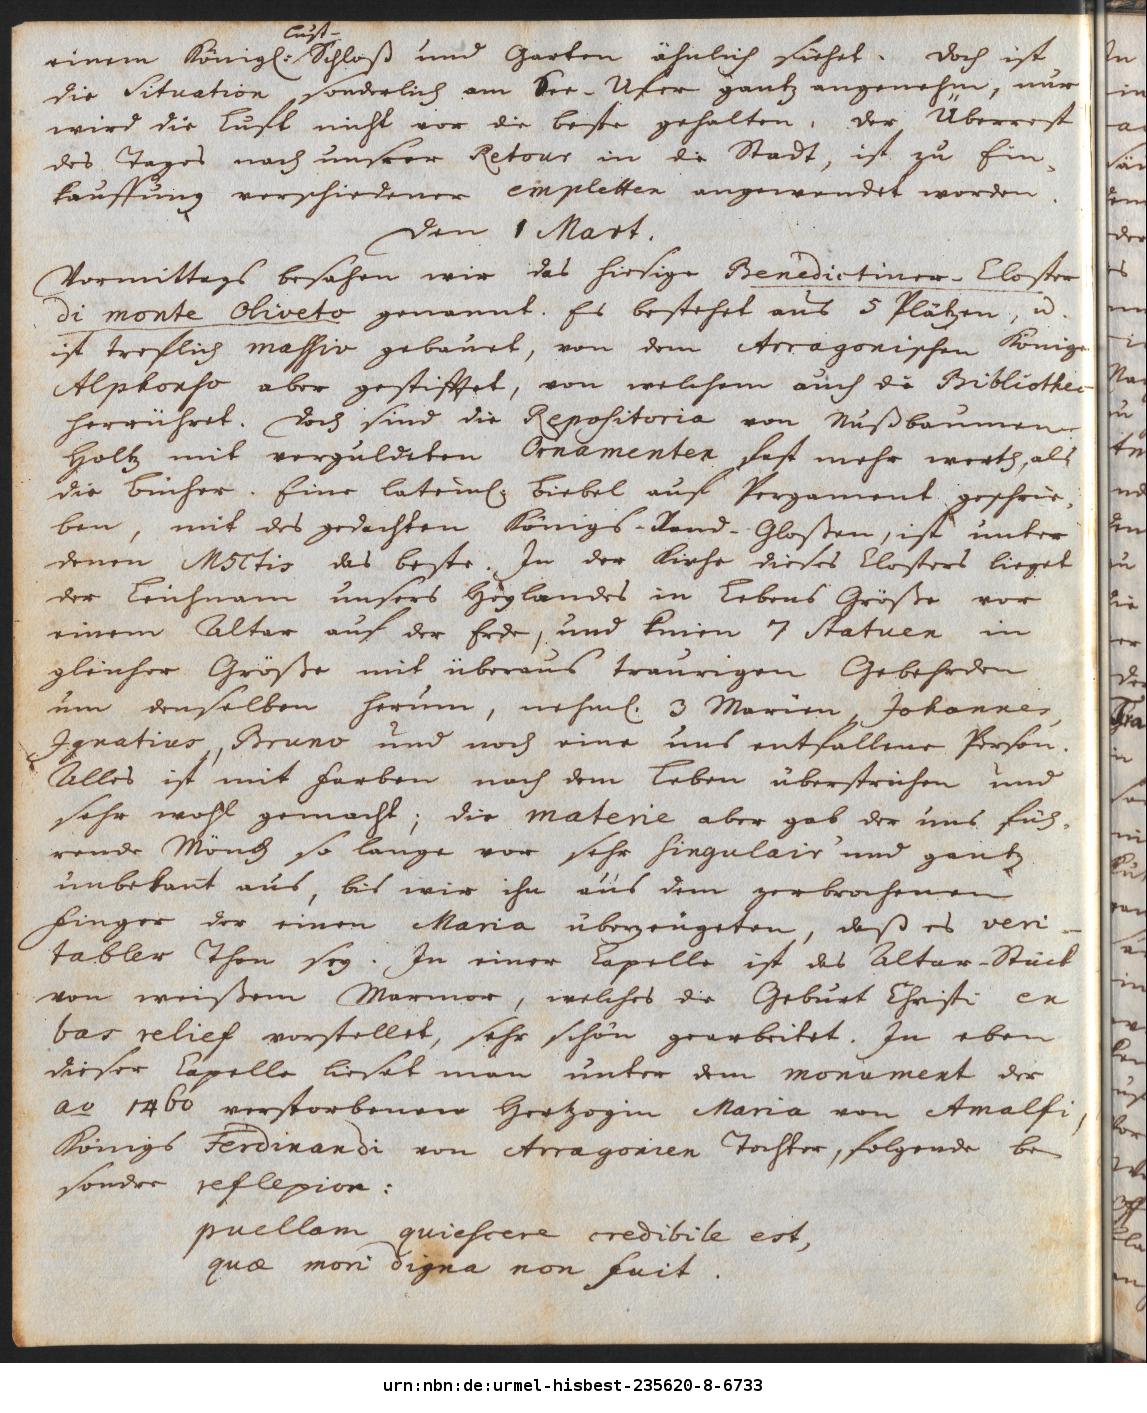 Lust-
einem Königl: Schloß und Garten ähnlich siehet. Doch ist
die Situation sonderlich am See-Ufer gantz angenehm, nur
wird die Luft nicht vor die beste gehalten. Der Überrest
des Tages nach unserer Retour in die Stadt, ist zu Ein-
kauffung verschiedener empletten angewendet worden.
Den 1 Mart.
Vormittags besahen wir das hiesige Benedictiner-Closter
di monte Oliveto genannt. Es bestehet aus 5 Plätzen, u.
ist treflich massiv gebauet, von dem Arragonischen Könige
Alphonso aber gestifftet, von welchem auch die Bibliothec
herrühret. Doch sind die Repositoria von Nußbaumen
Holtz mit verguldeten Ornamenten fast mehr werth, als
die Bücher. Eine lateinl. Biebel auf Pergament geschrie-
ben, mit des gedachten Königs-Rand-Gloßen, ist unter
denen MSCtis das beste. In der Kirche dieses Closters lieget
der Leichnam unsers Heylandes in Lebens Größe vor
einem Altar auf der Erde, und knien 7 Statuen in
gleicher Größe mit überaus traurigen Gebehrden
um denselben herum, nehml. 3 Marien, Johannes,
Ignatius, Bruno und noch eine uns entfallene Person.
Alles ist mit Farben nach dem Leben überstrichen und
sehr wohl gemacht; die materie aber gab der uns füh-
rende Mönch so lange vor sehr singulair und gantz
unbekant aus, bis wir ihn aus dem zerbrochenen
Finger der einen Maria überzeugeten, daß es veri-
tabler Thon sey. In einer Capelle ist das Altar-Stück
von weißem Marmor, welches die Geburt Christi en
bas relief vorstellet, sehr schön gearbeitet. In eben
dieser Capelle lieset man unter dem monument der
ao 1460 verstorbenen Hertzogin Maria von Amalfi,
Königs Ferdinandi von Arragonien Tochter, folgende be
sondre reflexion:
puellam quiescere credibile est,
quæ mori digna non fuit.
urn:nbn:de:urmel-hisbest-235620-8-6733